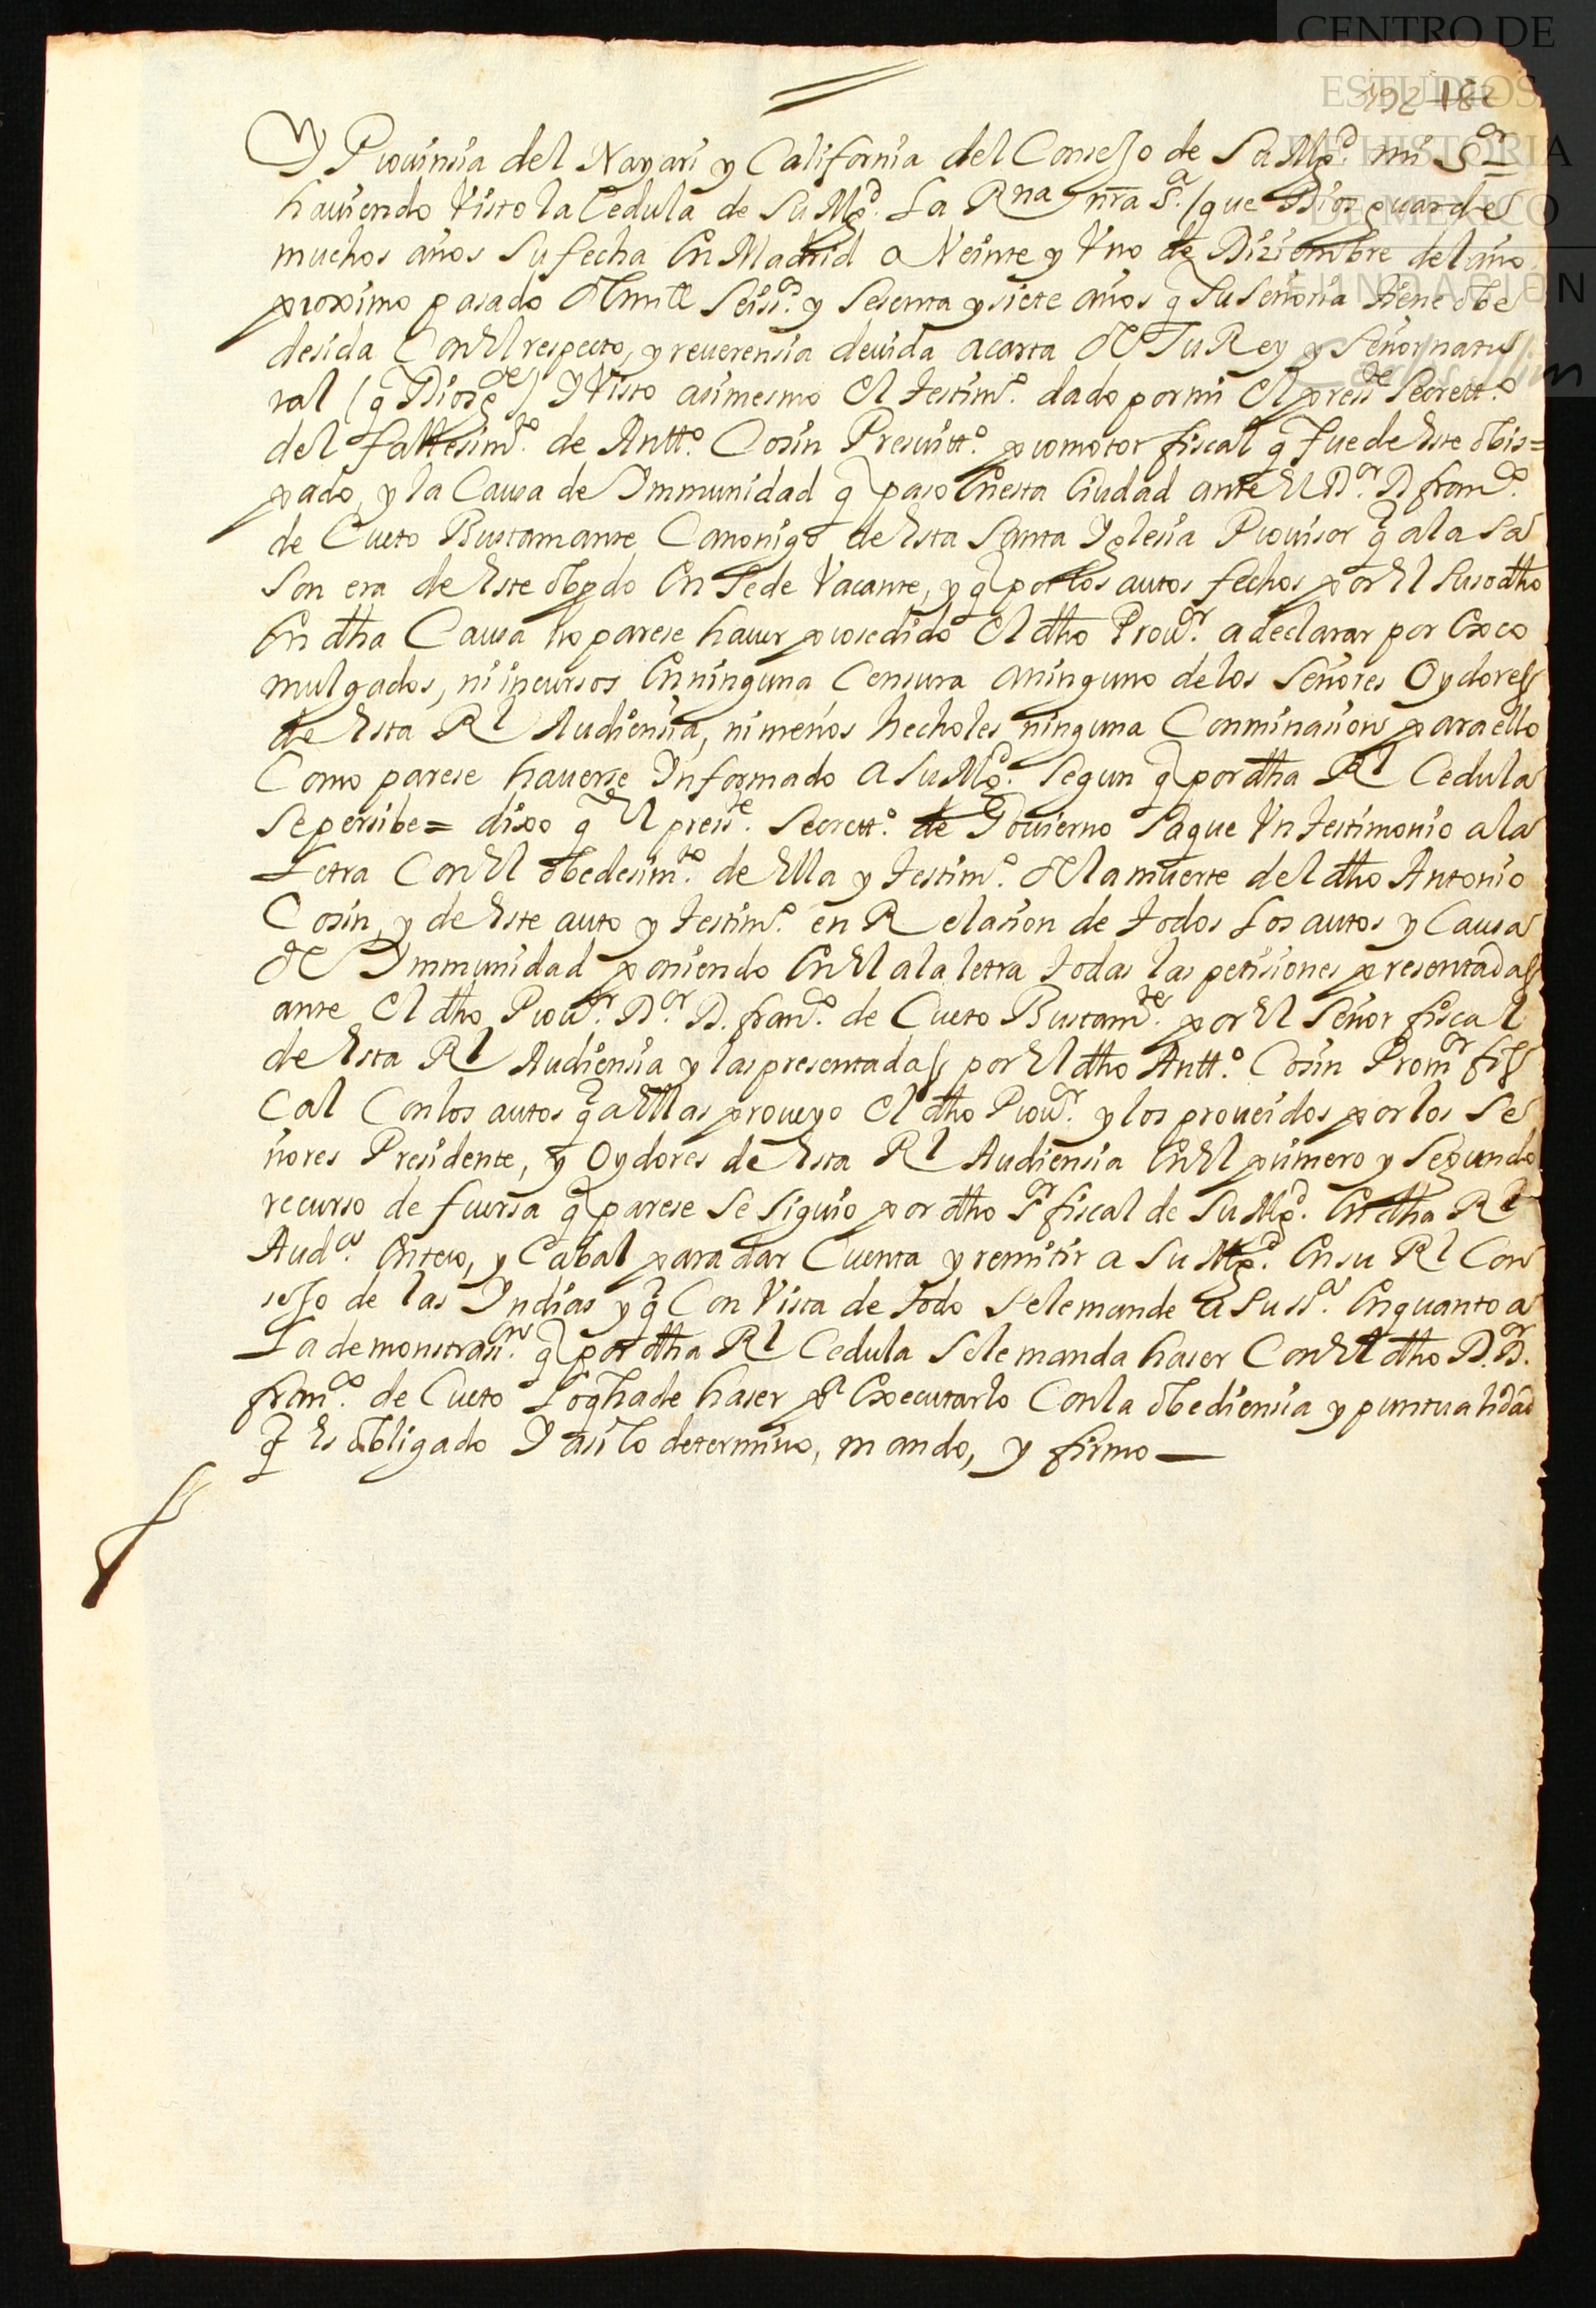 CENTRO DE
ESTUDIOS
DE HISTORIA
DE MEXICO
FUNDACIÓN
Carlos Slim
192 182
Y Prouinsia del Nayari y California del Consejo de Su Mgd. mi Sor
hauiendo Visto la Cedula de Su Mgd. La Rna nra Sa. (que Dios guarde
muchos años Su fecha En Madrid a Veinte y Vno de Diziembre del año
proximo pasado de mill Seisos. y Sesenta y siete años q Su Señoria tiene obe
desida Con El respecto, y reuerensia deuida a carta de Su Rey y Señor natu
ral (q Dios ge) Y Visto asimesmo El testimo. dado por mi El presste Secretto.
del fallesimto. de Antto. Cosin Presuitto. promotor fiscal q fue de Este obis=
pado, y la Causa de Ymmunidad q paso En esta Ciudad ante El Dor. D franco.
de Cueto Bustamante Canonigo de Esta Santa Yglesia Prouisor q a la Sa
Son era de Este obpdo En Sede Vacante, y q por los autos fechos por El Susodho
En dha Causa no parese hauer prosedido El dho Prouor. a declarar por Exco
mulgados, ni incursos En ninguna Censura a ninguno de los Señores Oydores
de Esta Rl Audiensia, ni menos hecholes ninguna Conminasion para ello
Como parese hauerse Ynformado a Su Mgd. Segun q por dha Rl Cedula
Se persibe = dixo q El presste. Secretto. de Gouierno Saque Vn testimonio a la
Letra Con El obedesimto. de Ella y testimo. de la muerte del dho Antonio
Cosin, y de Este auto y testimo. en Relasion de todos Los autos y Causa
de Ymmunidad poniendo En El a la letra todas las petisiones presentadas
ante El dho Prouor. Dor. D. franco. de Cueto Bustamte. por El Señor fiscal
de Esta Rl Audiensia y las presentadas por El dho Antto. Cosin Promor fis
Cal Con los autos q a Ellas proueyo El dho Prouor. y los proueidos por los Se
ñores Presidente, y Oydores de Esta Rl Audiensia En El primero y Segundo
recurso de fuersa q parese Se siguio por dho Sor fiscal de Su Mgd. En dha Rl
Auda. Entero, y Cabal para dar Cuenta y remitir a Su Mgd. En su Rl Con
sejo de las Yndias y q Con Vista de todo Se le mande a Su ssa. En quanto a
La demonstrasn. q por dha Rl Cedula Se le manda haser Con El dho Dor D.
franco. de Cueto Lo q ha de haser pa Executarlo Con la obediensia y puntualidad
q Es obligado Y asi lo determino, mando, y firmo —